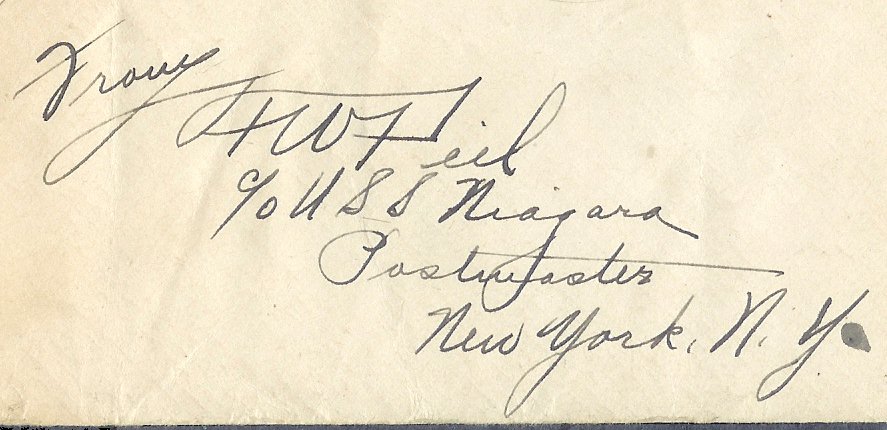 From
F W Feil
c/o U S S Niagara
Postmaster
New York, N. Y.